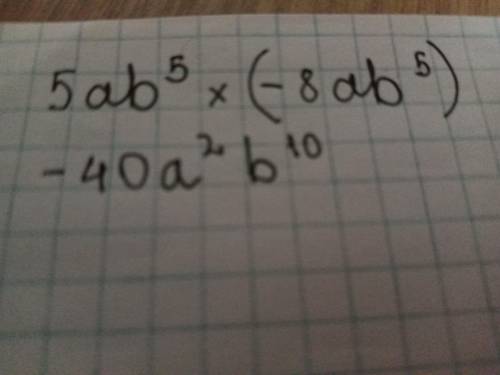 5ab⁵ × (-8ab⁵)
-40a²b¹⁰